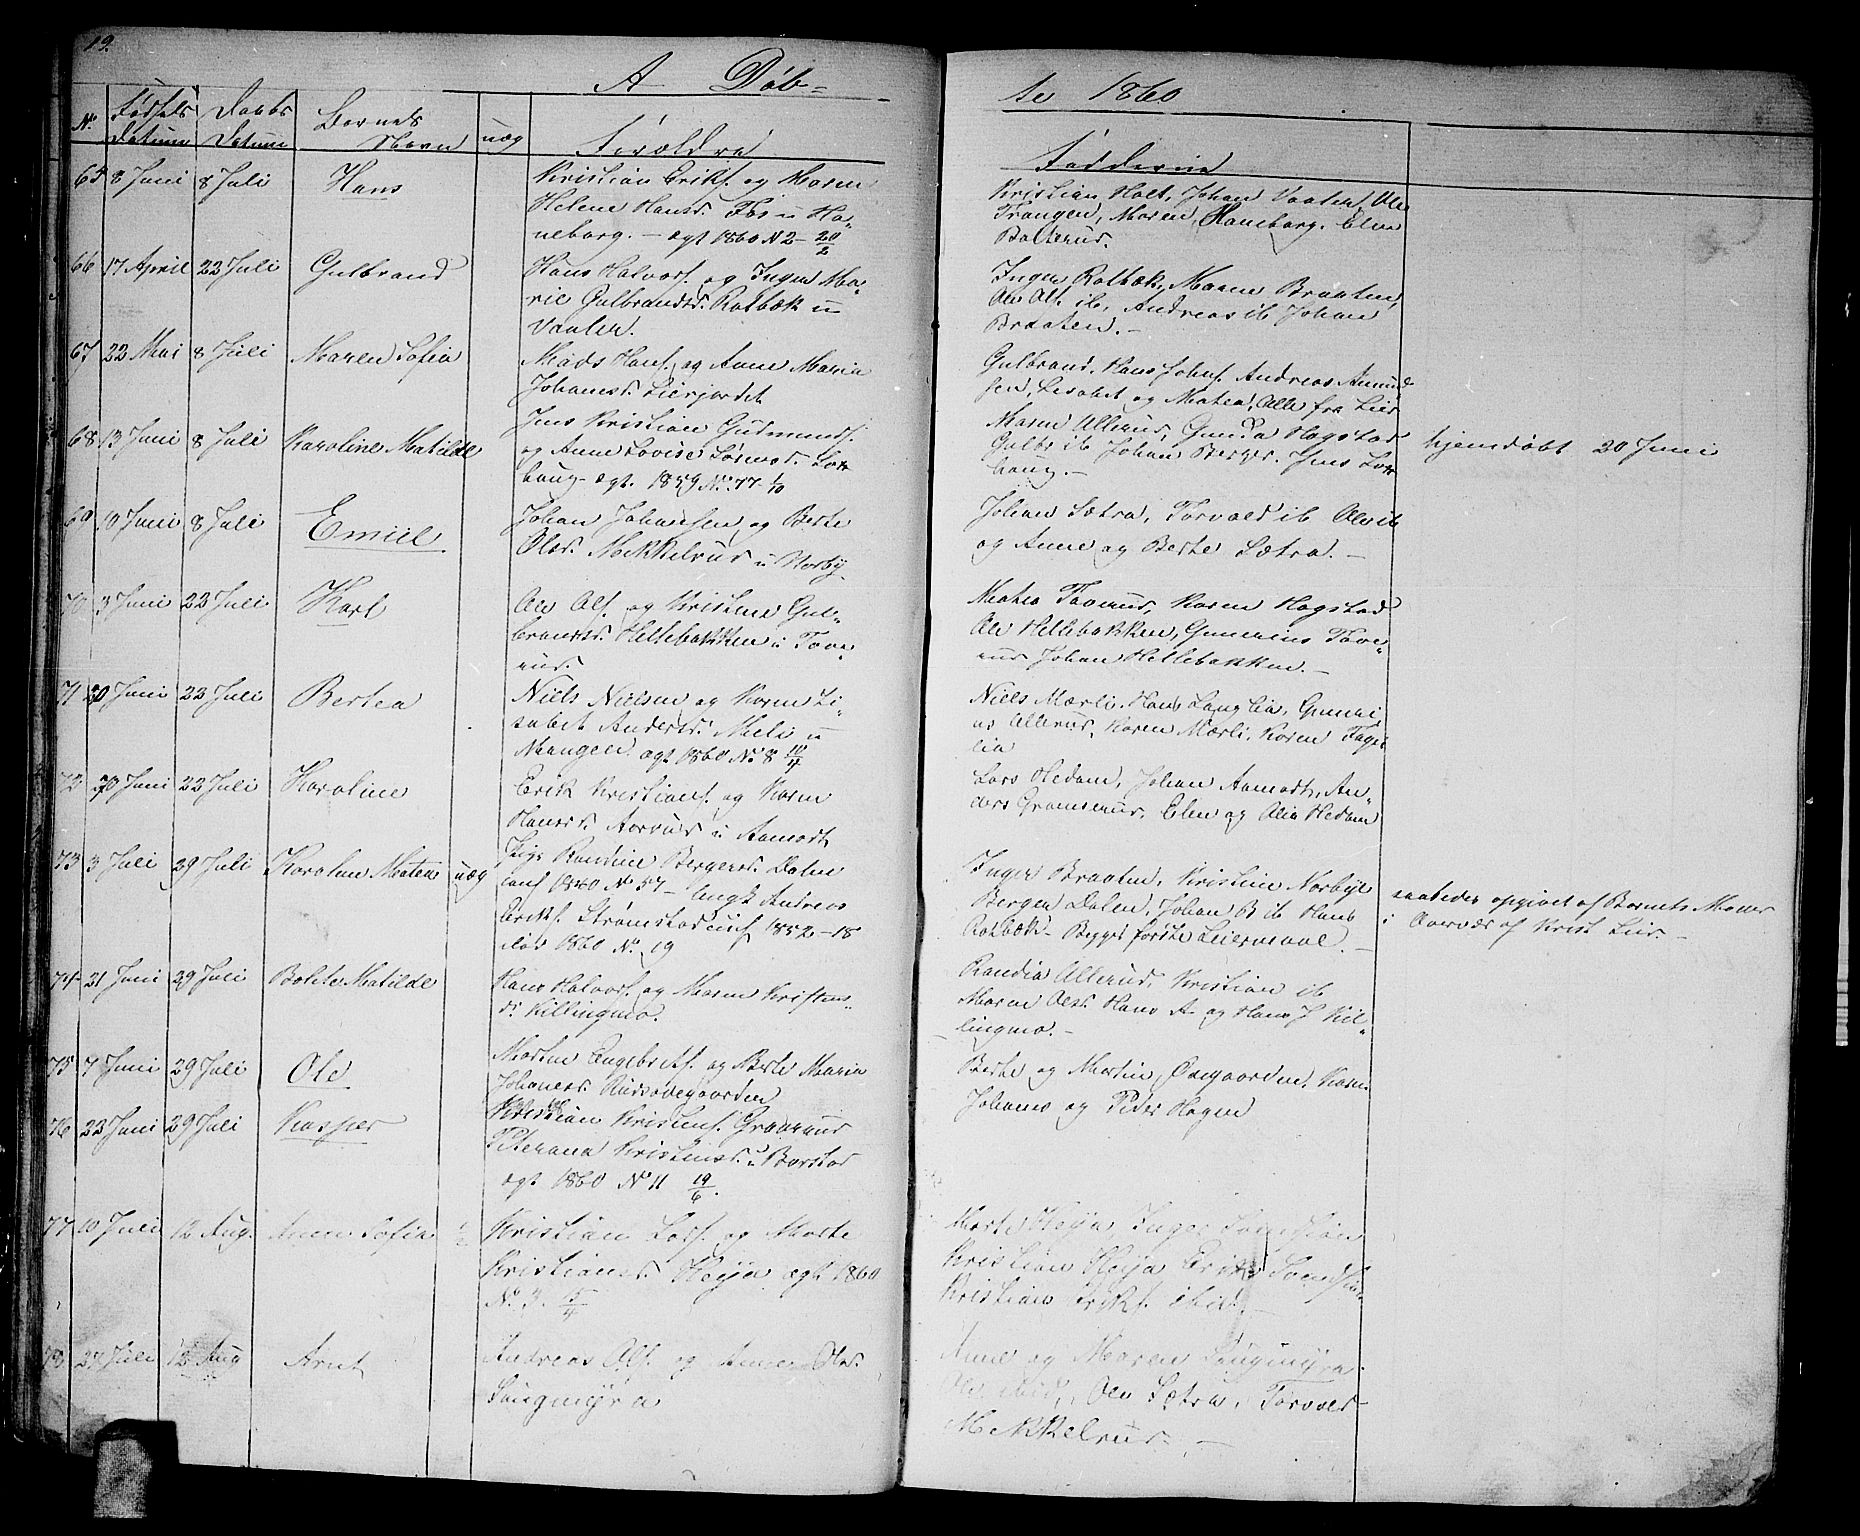 19.
A Döb-
te 1860
No. Födsels Datum Daabs Datum Barnets Navn uæg Forældre
Fadderne
65 8 Juni 8 Juli Hans Kristian Eriks. og Maren
Helene Hansd. Fos u Ha-
neborg. - ægt 1860 N 2 - 20/2
Kristian Holt, Johan Vaaler, Ole
Trangen, Maren Haneborg. Elen
Bolterud.
66 17 April 22 Juli Gulbrand Hans Halvors. og Inger Ma-
rie Gulbrandsd. Rotbæk u
Vaaler.
Inger Rotbæk, Maren Braaten,
Ole Ols. ib, Andreas ib Johan
Braaten. -
67 22 Mai 8 Juli Maren Sofia Mads Hans. og Anne Maria
Johansd. Lierjordet
Gulbrand, Hans Johs. Andreas Amund
sen, Lisabet og Matea, Alle fra Lier
68 13 Juni 8 Juli Karoline Matilde Jens Kristian Gudmunds.
og Anne Lovise Larsd.
houg - ægt. 1859 No. 77 - 1/10
Maren Ullerud, Gunda Hogstad
Gulbr ib Johan Berger. Jens
houg. -
hjemdøbt 20 Juni
69 10 Juni 8 Juli Emiel Johan Johansen og Berte
Olsd. Mekkelrud u Norby
Johan Sætra, Torvald ib Ole ib
og Anne og Berte Sætra. -
70 3 Juni 22 Juli Karl Ole Ols. og Kristine Gul-
bransd. Hellebakken u Tove-
rud.
Matea Toverud, Karen Hogstad
Ole Hellebakken, Gunerius Tove-
rud Johan Hellebakken. -
71 20 Juni 22 Juli Bertea Niels Nielsen og Karen Li-
sabet Andersd. Meli u
Mangen ægt 1860 No. 8 10/4
Niels Mærli. Hans Langlia, Gunneri
us Ullerud, Karen Mærli, Karen Fager
lia
72 20 Juni 22 Juli Karoline Erik Kristians. og Karen
Hansd. Aarrud u Aamodt
Lars Hedam, Johan Aamodt, An-
ders Gramserud, Elen og Olia Hedam
73 3 Juli 29 Juli Karolun Maten uæg Pige Randine Bergersd. Dalen
conf 1860 No 57 - Ungk Andreas
Eriks. Strømstad conf 1852 - 18
1860 No. 19
Inger Braaten, Kristine Norbye
Berger Dalen, Johan B ib Hans
Rotbæk - Begges første Leiermaal. -
saaledes opgivet af Barnets Moder
i Overvær af Krist Lier. -
74 21 Juni 29 Juli Bolete Matilde Hans Halvors. og Maren Kristens-
d. Killingmo.
Randia Ullerud, Kristian ib
Maren Olsd. Hans A og Hans J Kil-
lingmo. -
75 7 Juni 29 Juli Ole Morten Engebrets. og Berte Maria
Johansd. Rudsødegaarden
Berte og Martin Ødegaarden, Karen
Johanns og Peder Hagen
76 22 Juni 29 Juli Kasper Kristian Kristens. Graarud
Peterana Kristensd. u Borstad
ægt 1860 No 11 19/6.
77 10 Juli 12 Aug. Anne Sofia Kristian Lars. og Marte
Kristiansd. Heyja ægt 1860
No. 3. 15/4
Marte Heyja, Inger
Kristian Heyja Erik
Kristian Eriks. ibid. -
78 27 Juli 12 Aug Arnt Andreas Ols. og Anne Olsd.
Langmyra
Anne og Maren Langmyra
Ole ibid, Ole Sætra, Torvald
Mekkelrud. -